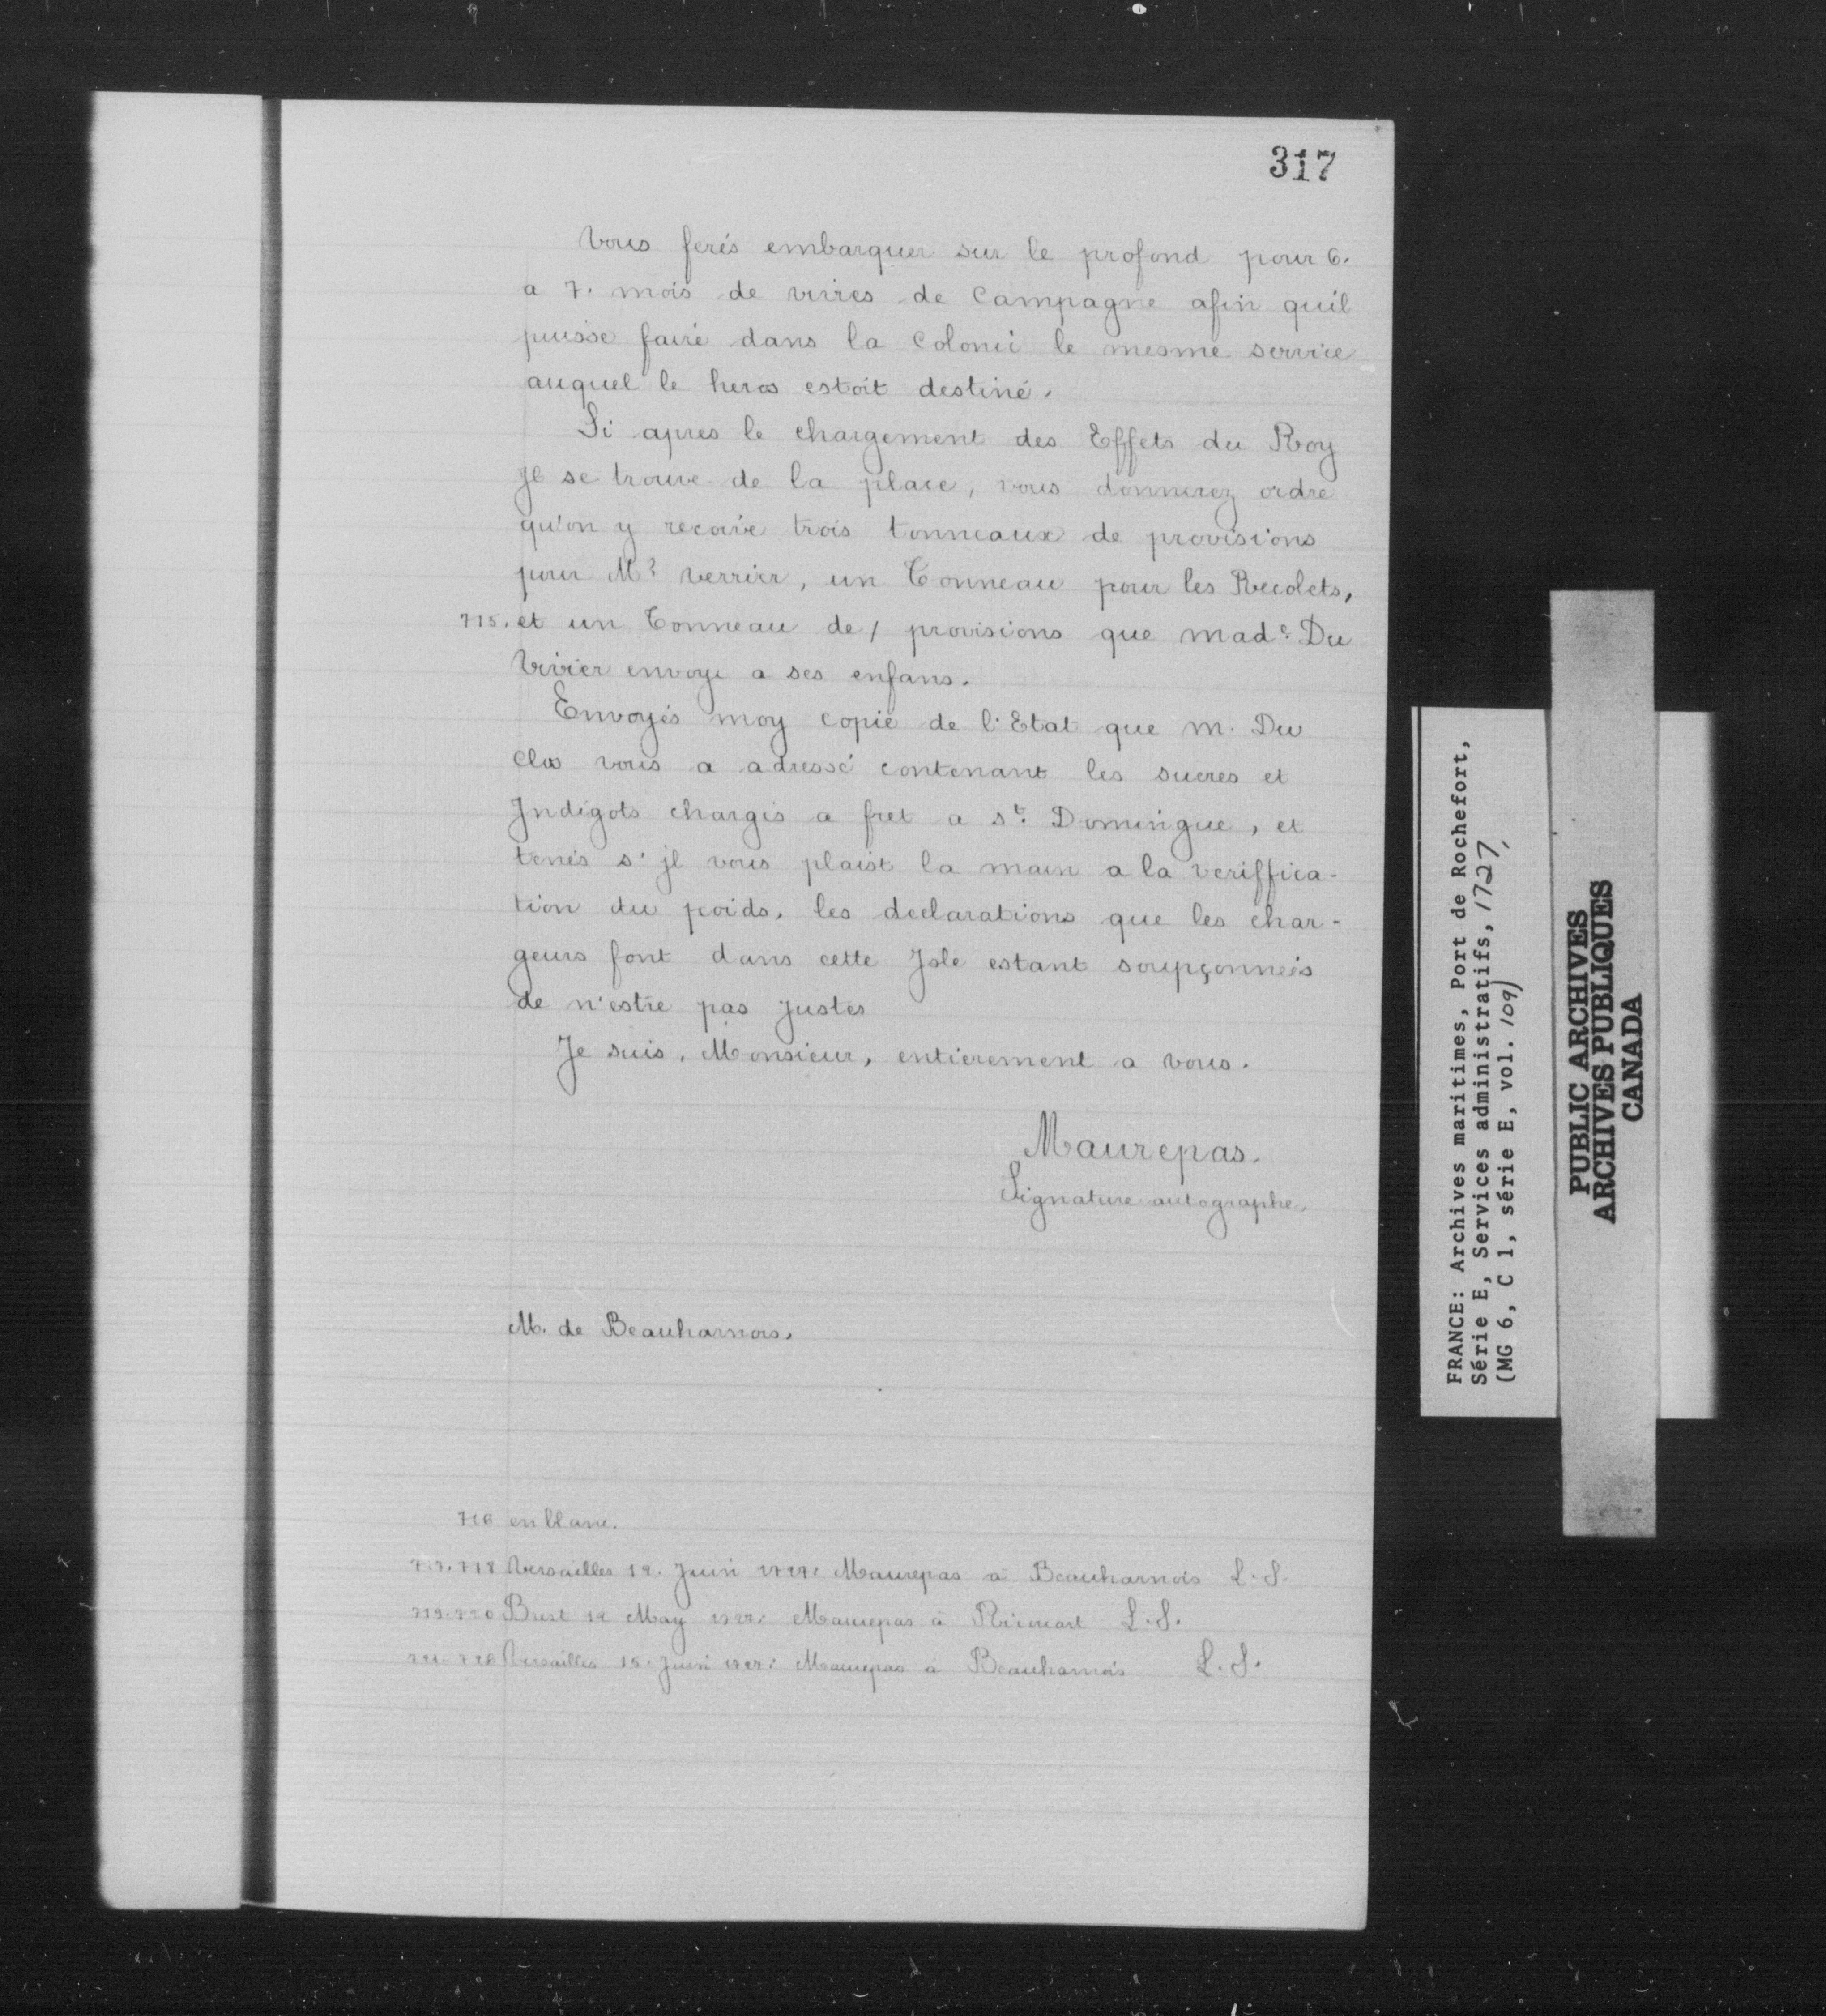 317
Vous ferés embarquer sur le profond pour 6.
a 7. mois de vivres de Campagne afin quil
puisse faire dans la Colonie le mesme service
auquel le heros estoit destiné.
Si apres le chargement des Effets du Roy
Jl se trouve de la place, vous donnerez ordre
qu'on y recoive trois tonneaux de provisions
pour Mr verrier, un Tonneau pour les Recolets,
715. et un Tonneau de / provisions que made Du
Vivier envoye a ses enfans.
Envoyés moy copie de l'Etat que M. Du
Clos vous a adressé contenant les sucres et
Jndigots chargés a fret a St Domingue, et
tenés s'jl vous plaist la main a la veriffica-
tion du poids. les declarations que les char-
geurs font dans cette Jsle estant soupçonnées
de n'estre pas justes
Je suis, Monsieur, entierement a vous.
Maurepas.
Signature autographe.
M. de Beauharnois.
716 en blanc.
717.718 Versailles 12. Juin 1727: Maurepas à Beauharnois L.S.
719.720 Brest 12 May 1727: Maurepas à Ricouart L.S.
721-726 Versailles 15. Juin 1727: Maurepas à Beauharnois L.S.
FRANCE: Archives maritimes, Port de Rochefort,
Série E, Services administratifs, 1727,
(MG 6, C 1, série E, vol. 109)
PUBLIC ARCHIVES
ARCHIVES PUBLIQUES
CANADA